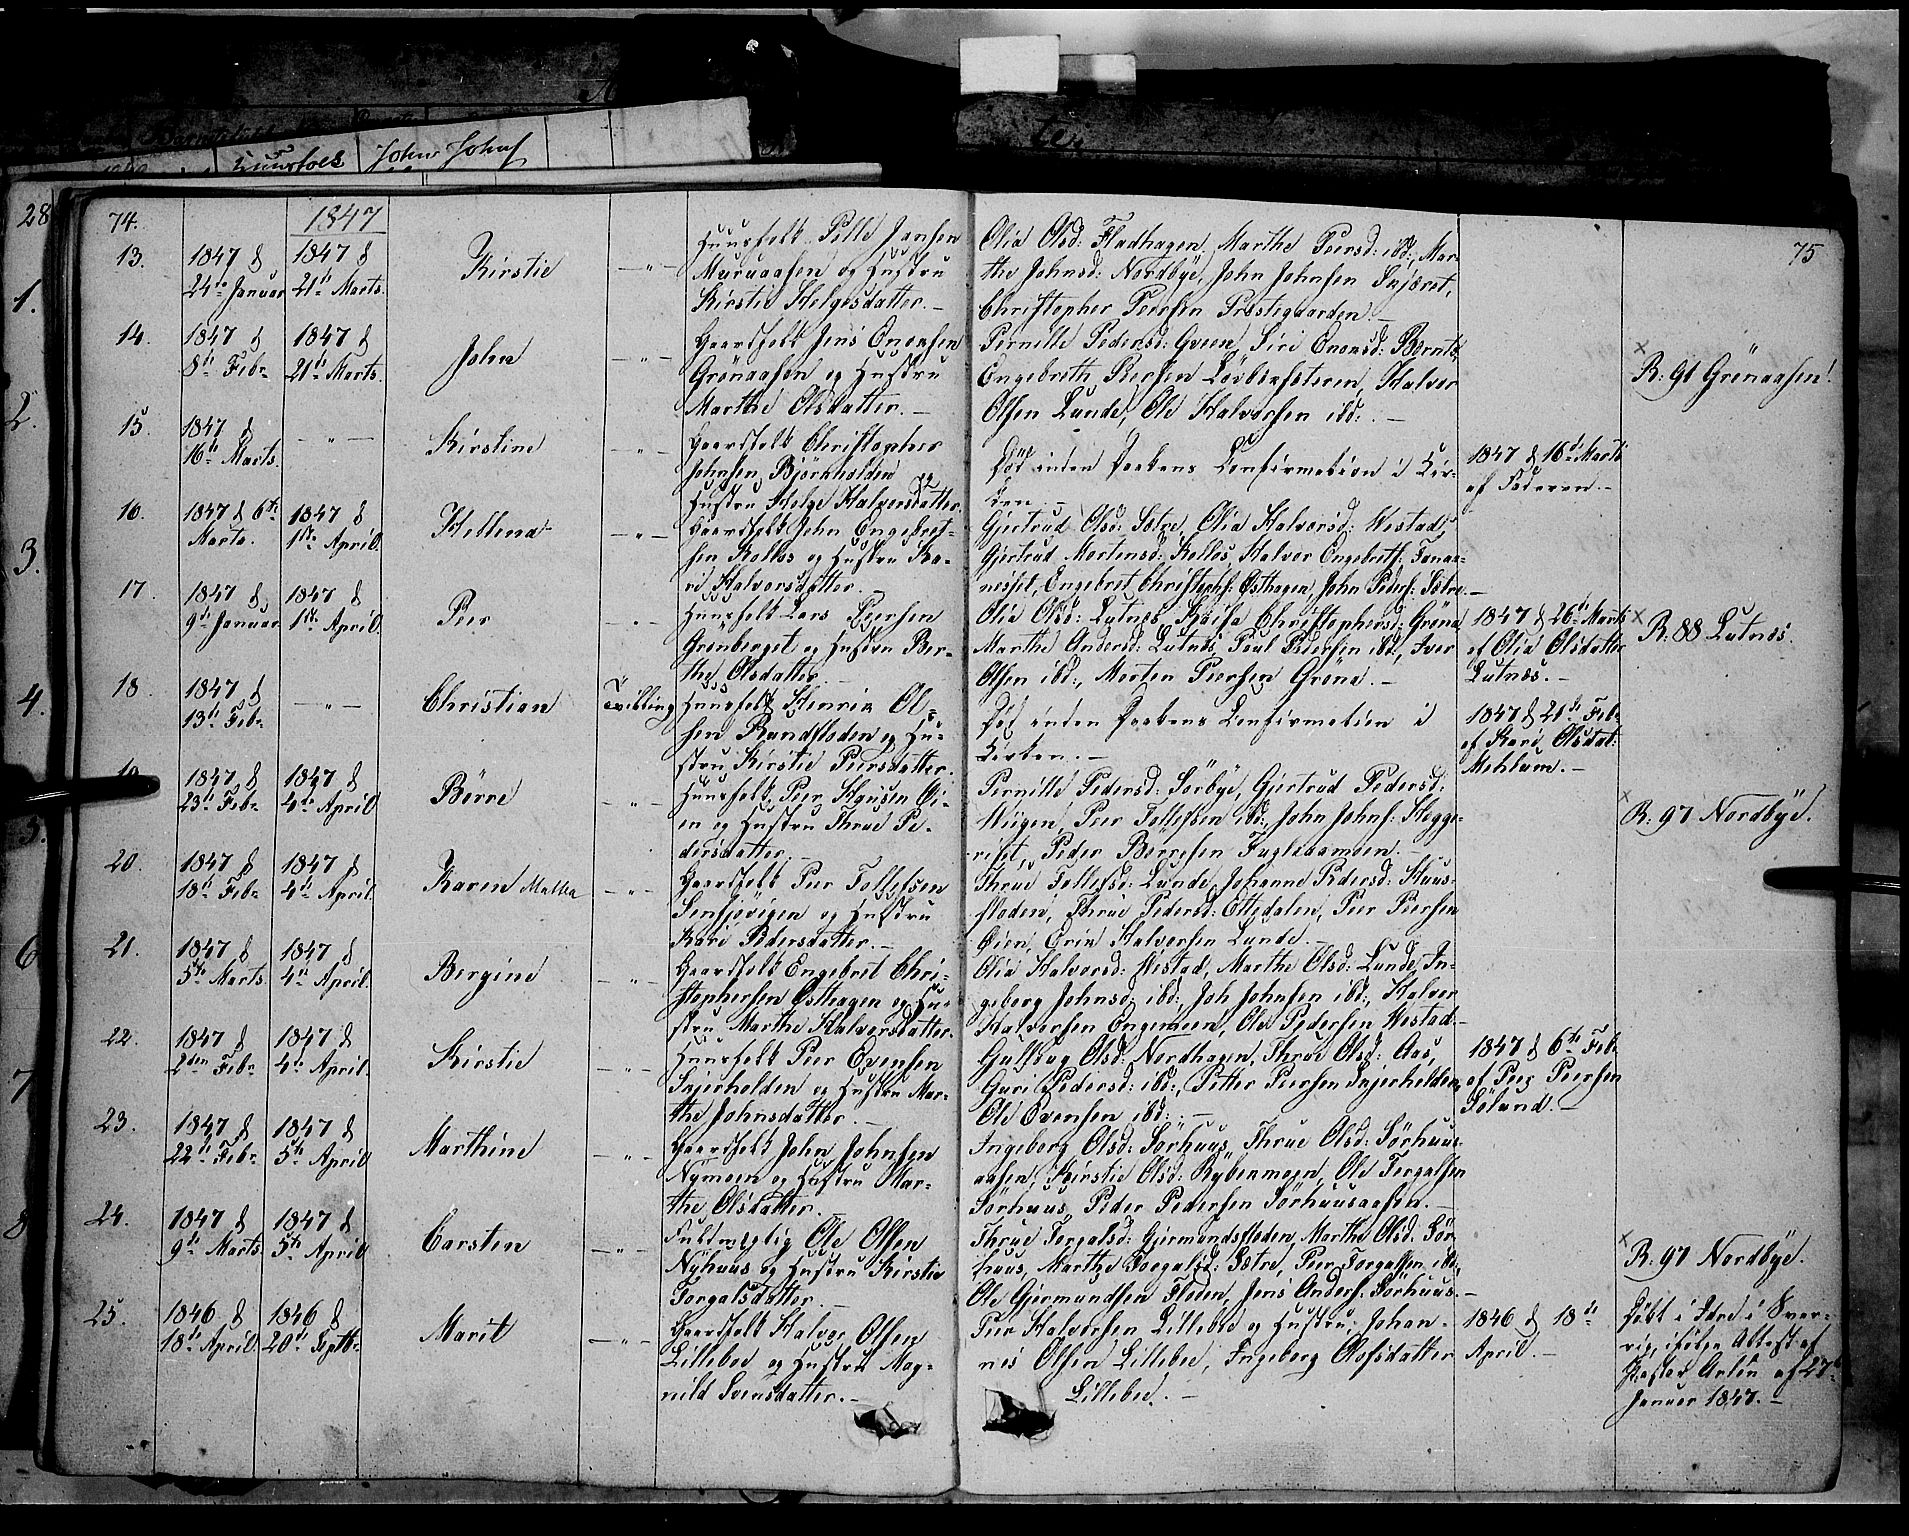 74.
1847
75
13.
1847 d
24de Januar
1847 d
21de Marts.
Kirstie
— " —
Huusfolk Pelle Jansen
Muruaasen og Hustru
Kirstie Helgesdatter. —
Olia Olsd: Fladhagen, Marthe Peersd: ibd:, Mar-
the Johnsd: Nordbÿe, John Johnsen
Christopher Peersen Præstegaarden. —
14.
1847 d
8de Febr
1847 d
21de Marts.
John
— " —
Gaardfolk Jens Onensen
Grönaasen og Hustru
Marthe Olsdatter. —
Pernille Pedersd: Siri Onensd: Bernts
Engebreth Halvor
Olsen Lunde, Ole Halvorsen ibd: —
R: 91 Grönaasen!
15.
1847 d
16de Marts.
— " —
Kirstine
— " —
Gaardfolk Christopher
Johnsen Björnholden
Hustru Helge Halvorsdatter
Död inden Daabens Confirmation i Kir-
ken. —
1847 d 16de Marts
af Faderen. —
16.
1847 d 6te
Marts.
1847 d
1ste April.
Hellena
— " —
Gaardfolk John Engebret-
sen Kolles og Hustru Ka-
ri Halvorsdatter.
Gjertrud Olsd: Sætre, Olia Halvorsd: Westad,
Gjertrud Mortensd: Kolles, Halvor Engebreths:
Engebret Christophs: Østhagen, John Peders: Sætre. —
17.
1847 d
9de Januar
1847 d
1ste April.
Peer
— " —
Huusfolk Lars Peersen
Grönberget og Hustru Ber-
the Olsdatter. —
Olia Olsd: Lutnes, Christophersd: Gröna
Marthe Andersd: Lutnes, Poul Pedersen ibd:, Iver
Olsen ibd:, Morten Peersen Gröna. —
1847 d 26de Marts
af Olia Olsdatter
Lutnes. —
R. 88 Lutnes.
18.
1847 d
13de Febr
— " —
Christian
Tvilling
Huusfolk Henrik Ol-
sen Rundfloden og Hu-
stru Kirstie Peersdatter.
Död inden Daabens Confirmation i
Kirken. —
1847 d 21de Feb.
af Kari Olsdat:
Mehlum. —
19
1847 d
23de Febr
1847 d
4de April
Börre
— " —
Huusfolk Peer Øi-
en og Hustru Thrue Pe-
dersdatter. —
Pernille Pedersd: Sörbÿe, Gjertrud Pedersd:
Wiigen, Peer Tollefsen ibd:, John Johns: Hegge-
riset, Peder Börresen Fuglaamoen. —
R: 97 Nordbÿe.
20.
1847 d
18de Febr
1847 d
4de April.
Karen Mallea
— " —
Gaardfolk Peer Tollefsen
Sensjövigen og Hustru
Kari Pedersdatter. —
Thrue Tollefsd: Lunde, Johanne Pedersd: Huus-
floden, Thrue Pedersd: Peer Peersen
Øien, Halvorsen Lunde. —
21.
1847 d
5te Marts.
1847 d
4de April.
Bergine
— " —
Gaardfolk Engebret Chri-
stophersen Østhagen og Hu-
stru Marthe Halvorsdatter.
Olia Halvorsd: Westad, Marthe Olsd: Lunde, In-
geborg Johnsd: ibd:, Joh Johnsen ibd:, Halvor
Halvorsen Engemoen, Ole Pedersen Westad. —
22.
1847 d
2den Febr
1847 d
4de April.
Kirstie
— " —
Huusfolk Peer Evensen
Snjerholden og Hustru Mar-
the Johnsdatter. —
Gulbög Olsd: Nordhagen, Thrue Olsd: Aas,
Guri Pedersd: ibd:, Petter Peersen Snjerholden,
Ole Evensen ibd: —
1847 d 6te Feb.
af Peer Peersen
Sölund. —
23.
1847 d
22de Febr
1847 d
5te April
Marthine
— " —
Gaardfolk John Johnsen
Nÿmoen og Hustru Mar-
the Olsdatter. —
Ingeborg Olsd: Sörhuus, Thrue Olsd: Sörhuus-
aasen, Kirstie Olsd: Rÿbenmoen, Ole Torgalsen
Sörhuus, Peder Pedersen Sörhuusaasen. —
24.
1847 d
9de Marts.
1847 d
5te April
Carsten
— " —
Ole Olsen
Nÿhuus og Hustru Kirstie
Torgalsdatter. —
Thrue Torgalsd: Gjermundsfloden, Marthe Olsd: Sör-
huus, Marthe Torgalsd: Sætre, Peer Torgalsen ibd:,
Ole Gjermunds: Floden, Jens Anders: Sörhuus. —
R: 97 Nordbÿe.
25.
1846 d
18de April.
1846 d
20de Septbr
Marit
— " —
Gaardfolk Halvor Olsen
Lilleboe og Hustru Mag-
nild Svensdatter. —
Peer Halvorsen Lilleboe og Hustru, Johan-
nes Olsen Lilleboe, Ingeborg Olofsdatter
Lilleboe. —
1846 d 18de
April. —
Döbt i Idre i Sver-
rig, ifölge Attest af
Pastor Arlén af 27de
Januar 1847. —
28
1.
2.
3.
4.
5.
6
7
8
Huusfolk
John Johns